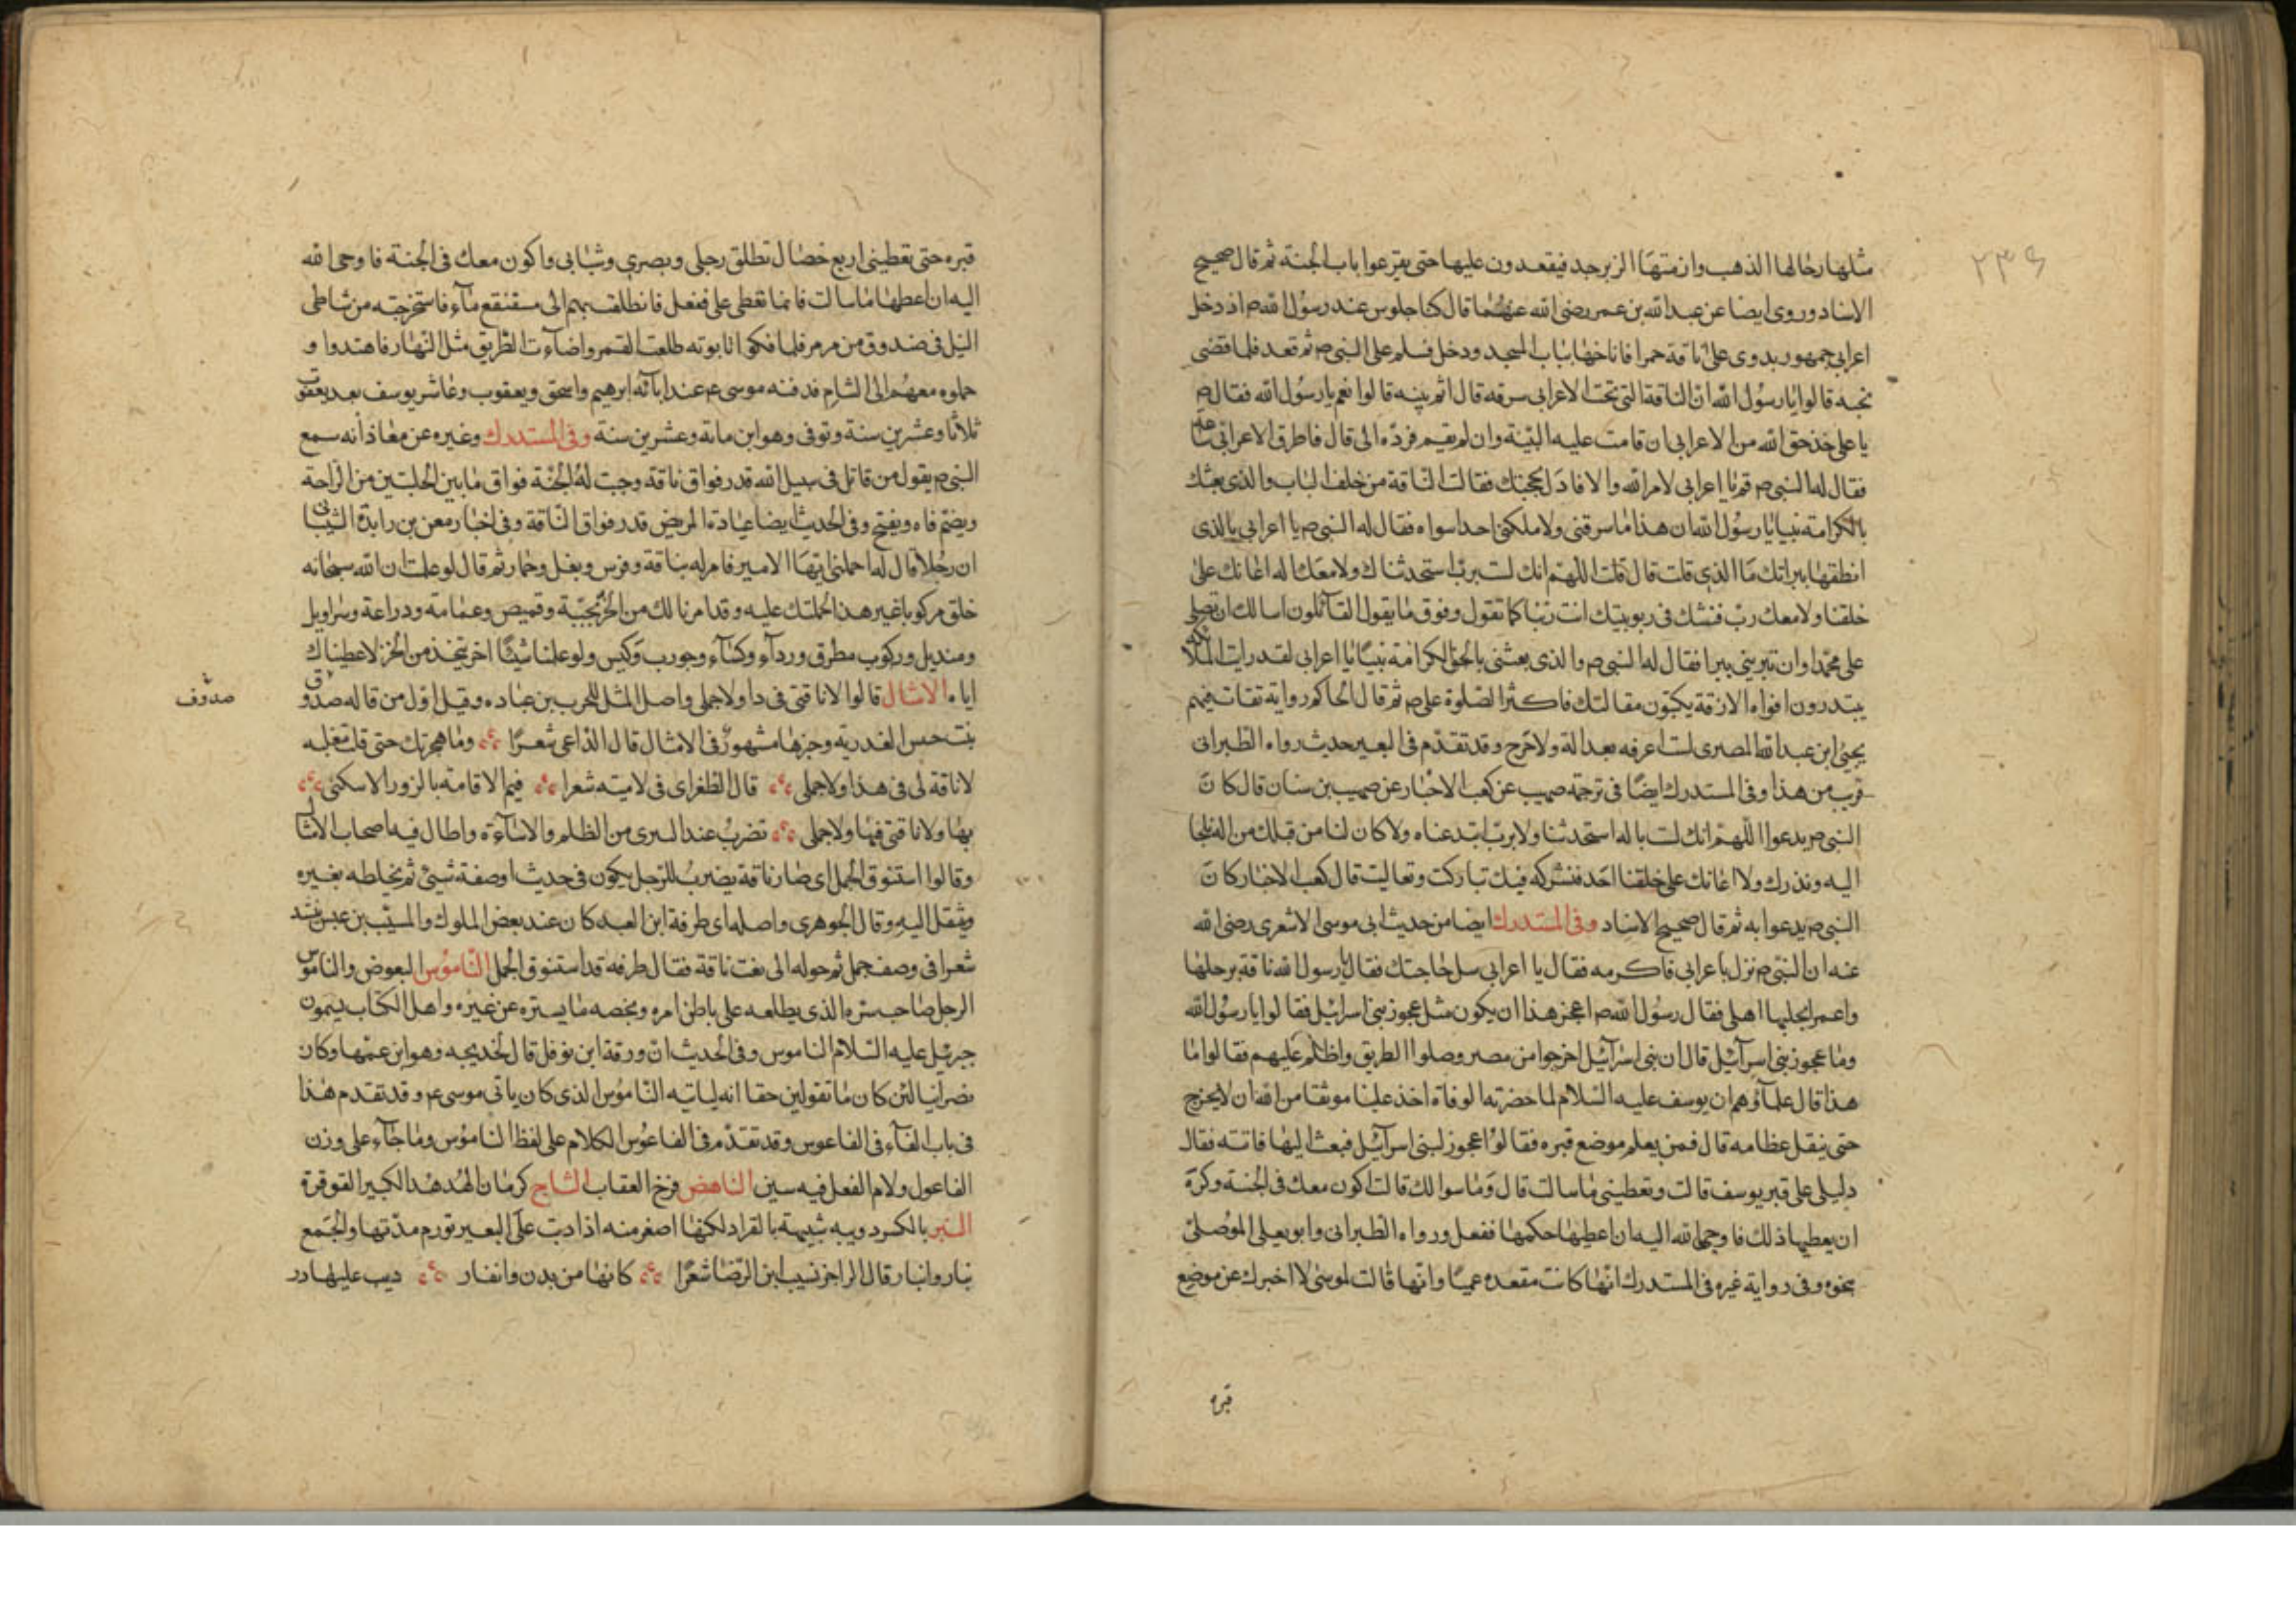 ٢٣٦
مثلها رحالها الذهب وازمتها الزبرجد فيقعدون عليها حتى يقرعوا باب الجنة ثم قال صحيح
الاسناد وروى ايضا عن عبد الله بن عمر رضى الله عنهما قال كنا جلوس عند رسول الله ص اذ دخل
اعرابى جمهور بدوى على ناقة حمرا فاناخها بباب المسجد ودخل فسلم على النبى ص ثم قعد فلما قضى
نحبه قالوا يا رسول الله ان الناقة التى تحت الاعرابى سرقه قال اثم بينه قالوا نعم يا رسول الله فقال ص
يا على خذ حق الله من الاعرابى ان قامت عليه البينة وان لم يقيم فردّه الى قال فاطرق الاعرابى ساعة
فقال له النبى ص قم يا اعرابى لامر الله والا فادل بحجتك فقالت الناقة من خلف الباب والذى بعثك
بالكرامة نبيا يا رسول الله ان هذا ما سرقنى ولا ملكنى احد سواه فقال له النبى ص يا اعرابى بالذى
انطقها ببراتك ما الذى قلت قال قلت اللهم انك لست برب استحدثناك ولا معك اله اعانك على
خلقنا ولا معك رب فنشك فى ربوبيتك انت ربنا كما تقول وفوق ما يقول القائلون اسالك ان تصلى
على محمد وان تبرينى ببرا فقال له النبى ص والذى بعثنى بالحق الكرامة نبيّا يا اعرابى لقد رايت الملائكة
يبتدرون افواه الازقة يكتبون مقالتك فاكثر الصلوة على ص ثم قال الحاكم رواية ثقات فيهم
يحيى ابن عبد الله المصرى لست اعرفه بعدالة ولا جرح وقد تقدّم فى البعير حديث رواه الطبرانى
قرب من هذا وفى المستدرك ايضًا فى ترجمة صهيب عن كعب الاحبار عن صهيب بن سنان قال كان
النبى ص يدعوا اللهم انك لست باله استحدثنا ولا برب ابتدعناه ولا كان لنا من قبلك من اله نلجا
اليه ونذرك ولا اعانك على خلقنا احد فنشركه فيك تباركت وتعاليت قال كعب الاخبار كان
النبى ص يدعوا به ثم قال صحيح الاسناد وفى المستدرك ايضا من حديث ابى موسى الاشعرى رضى الله
عنه ان النبى ص نزل باعرابى فاكرمه فقال يا اعرابى سل حاجتك فقال يا رسول الله ناقة برحلها
واعمز ايحلبها اهلى فقال رسول الله ص اعجز هذا ان يكون مثل عجوز بنى اسرائيل فقالوا يا رسول الله
وما عجوز بنى اسرآئيل قال ان بنى اسرآئيل اخرجوا من مصر وضلوا الطريق واظلم عليهم فقالوا ما
هذا قال علمآؤهم ان يوسف عليه السلام لما حضرته الوفاة اخذ علينا موثقا من الله ان لا يخرج
حتى ينقل عظامه قال فمن يعلم موضع قبره فقالوا عجوز لبنى اسرآئيل فبعث اليها فاتته فقال
دليلى على قبر يوسف قالت وتعطينى ما سالت قال وما سوالك قالت اكون معك فى الجنة وكرة
ان يعطيها ذلك فاوحى الله اليه ان اعطيها حكمها ففعل ورواه الطبرانى وابو يعلى الموصلىّ
بخوه وفى رواية غيره فى المستدرك انها كانت مقعده عميا وانها قالت لموسى لا اخبرك عن موضع
قبره
قبره حتى تعطينى اربع خصال تطلق رجلى وبصرى وشبابى واكون معك فى الجنة فاوحى الله
اليه ان اعطها ما سالت فانما تعطى على ففعل فانطلقت بهم الى مستنقع مآء فاستخرجته من شاطى
النيل فى صندوق من مرمر فلما فكوا تابوته طلعت القمر واضآءت الطريق مثل النهار فاهتدوا و
حملوه معهم الى الشام فدفنه موسى ع م عند ابائه ابرهيم واسحق ويعقوب وعاش يوسف بعد يعقوب
ثلاثا وعشرين سنة وتوفى وهو ابن مائة وعشرين سنة وفى المستدرك وغيره عن معاذ انه سمع
النبى ص يقول من قاتل فى سبيل الله قدر فواق ناقة وجبت له الجنة فواق ما بين الحلبتين من الراحة
ويضم فاه ويفتح وفى الحديث ايضا عيادة المريض قدر فواق الناقة وفى اخبار معن بن رايدة الشيبانى
ان رجلا قال له احملنى ايها الامير فامر له بناقة وفرس وبغل وحمار ثم قال لو علمت ان الله سبحانه
خلق مركوبا غير هذا لحملتك عليه وقد امرنا لك من الخز بجبّة وقميص وعمامة ودراعة وسراويل
ومنديل وركوب مطرق وردآء وكسآء وجورب وكيس ولو علمنا شيئًا اخر يتخذ من الخز لاعطيناك
اياه الامثال قالوا لا ناقتى فى دا ولا جملى واصل المثل للحرب بن عباده وقيل اول من قاله صدوق
صدوف
بنت حس الغدرية وجزها مشهور فى الامثال قال الذاعى شعرًا وما هجرتك حتى قلت معلنه
لا ناقة لى فى هذا ولا جملى قال الطغراى فى لاميته شعرا فيم الاقامة بالزورا لا سكنى
بها ولا ناقتى فيها ولا جملى تضرب عند البرى من الظلم والاسآءة واطال فيه اصحاب الامثال
وقالوا استنوق الجمل اى صار ناقة يضرب للرجل يكون فى حديث او صفة شىء ثم يخلطه بغيره
وينقل اليه وقال الجوهرى واصله اى طرفة ابن العبد كان عند بعض الملوك والمسيّب بن عبس ينشد
شعرا فى وصف جمل ثم حوله الى نعت ناقة فقال طرفه قد استنوق الجمل الناموس البعوض والناموس
الرجل صاحب ستره الذى يطلعه على باطن امره ويخصه ما يستره عن غيره واهل الكتاب يسمون
جبرئيل عليه السلام الناموس وفى الحديث ان ورقة ابن نوفل قال لخديجه وهو ابن عمّها وكان
نصرانيا لئن كان ما تقولين حقا انه لياتيه الناموس الذى كان ياتى موسى ع م وقد تقدم هذا
فى باب الفآء فى الفاعوس وقد تقدّم فى الفاعوس الكلام على لفظ الناموس وما جآء على وزن
الفاعول ولام الفعل فيه سين الناهض فرخ العقاب الشاج كرمان الهدهد الكبير القوقرة
النبر بالكسر دويبه شبيهة بالقراد لكنها اصغر منه اذا دبت على البعير تورم مدتها والجمع
نبار وانبار قال الراجز نسيب ابن الرضا شعرًا كانها من بدن وانفار دبب عليها در